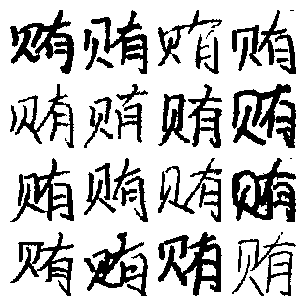 贿贿贿贿
贿贿贿贿
贿贿贿贿
贿贿贿贿